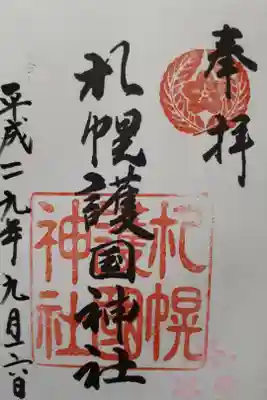 奉拝
札幌護国神社
札幌
護國
神社
平成二九年九月六日